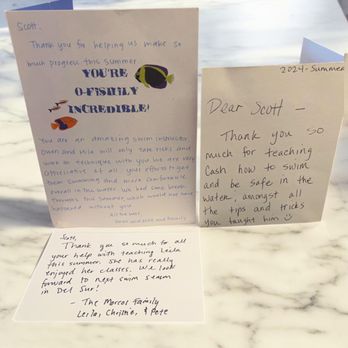 Scott,
Thank you for helping us make so
much progress this summer.
YOU'RE
O-FISHILY
INCREDIBLE!
You are an amazing swim instructor.
Owen and Isla will only take risks and
work on technique with you. We are very
appreciative of all your efforts to get
them swimming and more confident
overall in the water. We had some break-
throughs this summer which would not have
happened without you.
All the best,
and family
2024 - Summer
Dear Scott —
Thank you so
much for teaching
Cash how to swim
and be safe in the
water, amongst all
the tips and tricks
you taught him
Scott,
Thank you so much for all
your help with teaching Leila
this summer. She has really
enjoyed her classes. We look
forward to next swim season
in Del Sur!
- The Marcos Family
Leila, Christine, & Pete